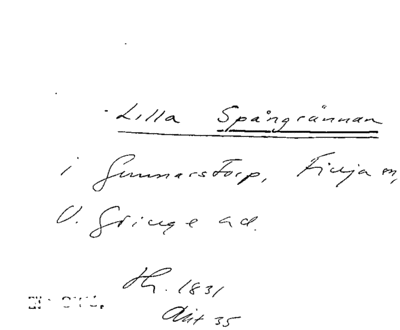 Lilla Spångrännan
i Gunnarstorp, Finja sn,
V. Göinge hd.
Hh. 1831
Akt 35